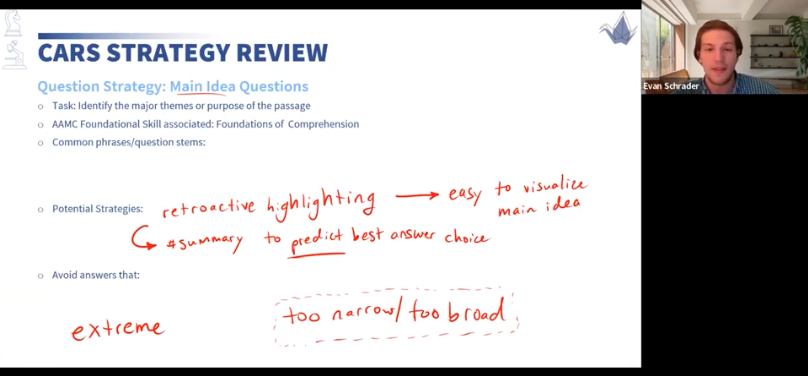 CARS STRATEGY REVIEW
Question Strategy: Main Idea Questions
Task: Identify the major themes or purpose of the passage
AAMC Foundational Skill associated: Foundations of Comprehension
Common phrases/question stems:
Potential Strategies: retroactive highlighting → easy to visualize
main idea
#summary to predict best answer choice
Avoid answers that:
extreme
too narrow/too broad
Evan Schrader